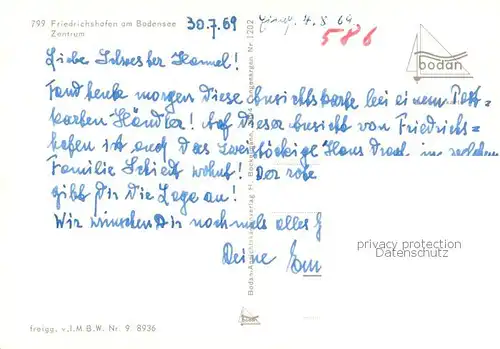 799 Friedrichshafen am Bodensee
Zentrum
30.7.69
4.8.69
586
bodan
Liebe Schwester Hannel!
Fand heute morgen diese Ansichtskarte bei einem Post-
karten Händler! Auf dieser Ansicht von Friedrichs-
hafen ist auch das zweistöckige Haus drauf, in welchem
Familie Schiedt wohnt! Der rote
gibt Dir die Lage an!
Wir wünschen Dir nochmals alles G
Deine
privacy protection
Datenschutz
freigg. v.I.M.B.W. Nr. 9 8936